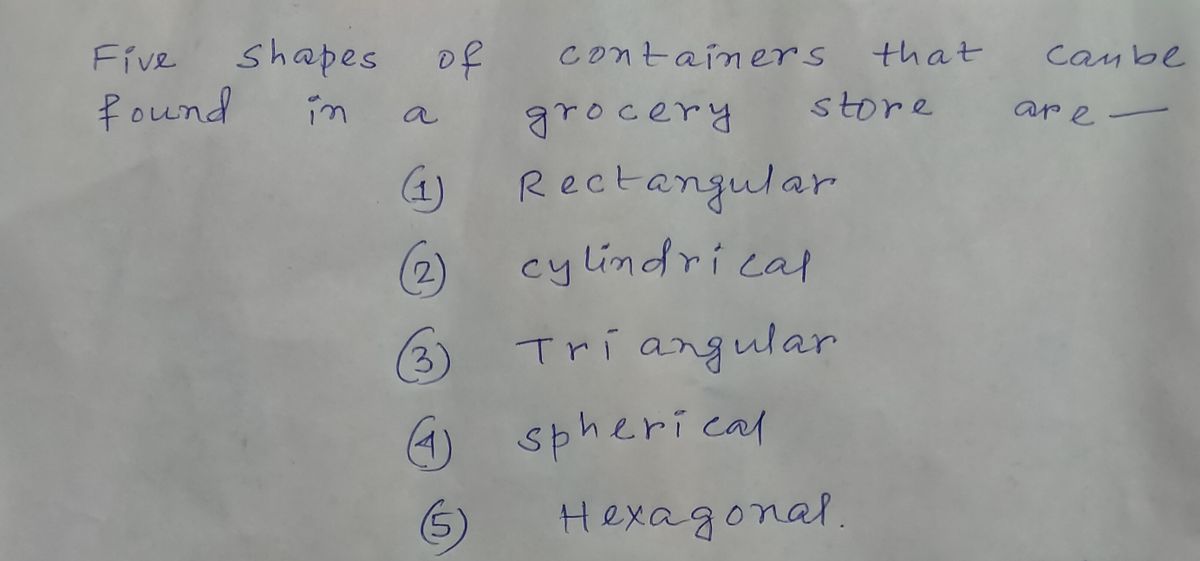 Five shapes of containers that canbe
found in a grocery store are —
(1) Rectangular
(2) cylindrical
(3) Triangular
(4) spherical
(5) Hexagonal.